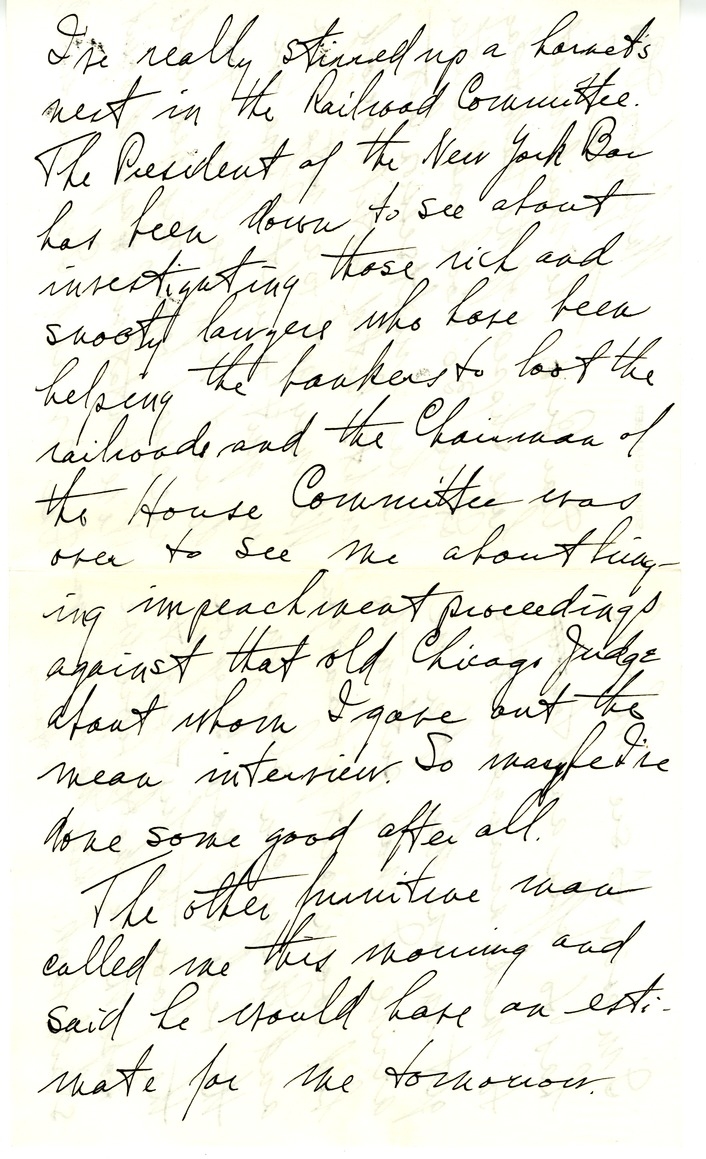 I've really stirred up a hornet's
nest in the Railroad Committee.
The President of the New York Bar
has been down to see about
investigating those rich and
snooty lawyers who have been
helping the bankers to loot the
railroads and the Chairman of
the House Committee was
over to see me about bring-
ing impeachment proceedings
against that old Chicago Judge
about whom I gave out the
mean interview. So maybe I've
done some good after all.
The other furniture man
called me this morning and
said he would have an esti-
mate for me tomorrow.